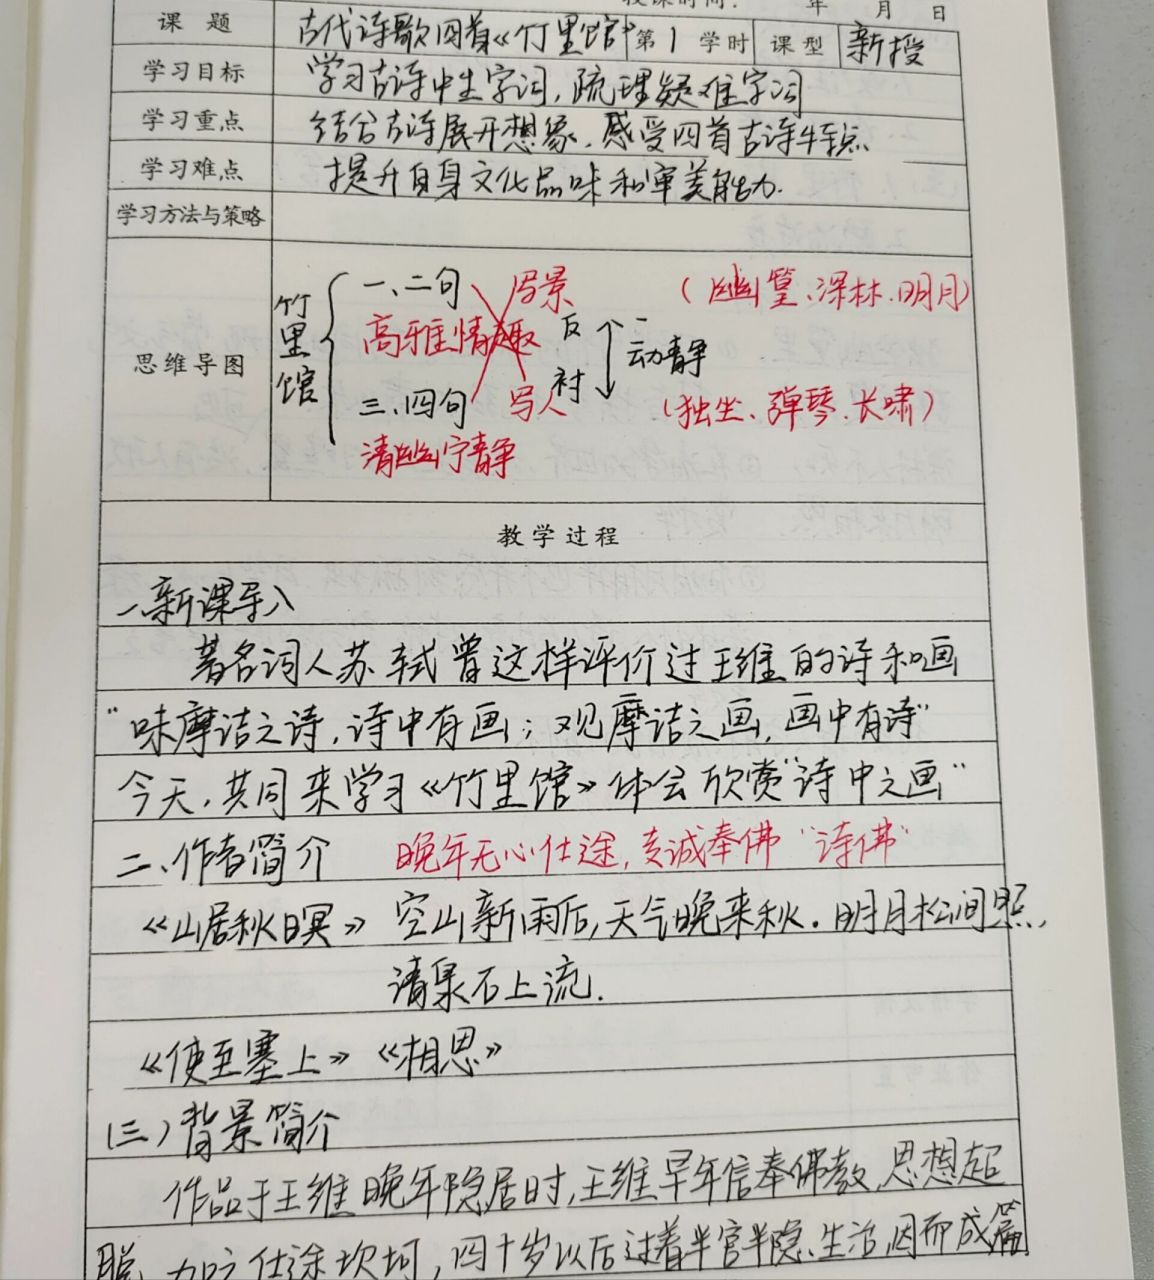 授课时间: 年 月 日
课 题 古代诗歌四首《竹里馆》 第 1 学时 课型 新授
学习目标 学习古诗中生字词,疏理疑难字词
学习重点 结合古诗展开想象,感受四首古诗特点
学习难点 提升自身文化品味和审美能力.
学习方法与策略
思维导图
竹里馆
一、二句 写景 (幽篁、深林、明月)
高雅情趣 反衬 动静
三、四句 写人 (独坐、弹琴、长啸)
清幽宁静
教学过程
一、新课导入
著名词人苏轼曾这样评价过王维的诗和画
"味摩诘之诗,诗中有画;观摩诘之画,画中有诗"
今天,共同来学习《竹里馆》体会欣赏"诗中之画"
二、作者简介 晚年无心仕途,专诚奉佛 "诗佛"
《山居秋暝》 空山新雨后,天气晚来秋.明月松间照,
清泉石上流.
《使至塞上》《相思》
(三)背景简介
作品于王维晚年隐居时,王维早年信奉佛教,思想超
脱,加之仕途坎坷,四十岁以后过着半官半隐生活,因而成篇